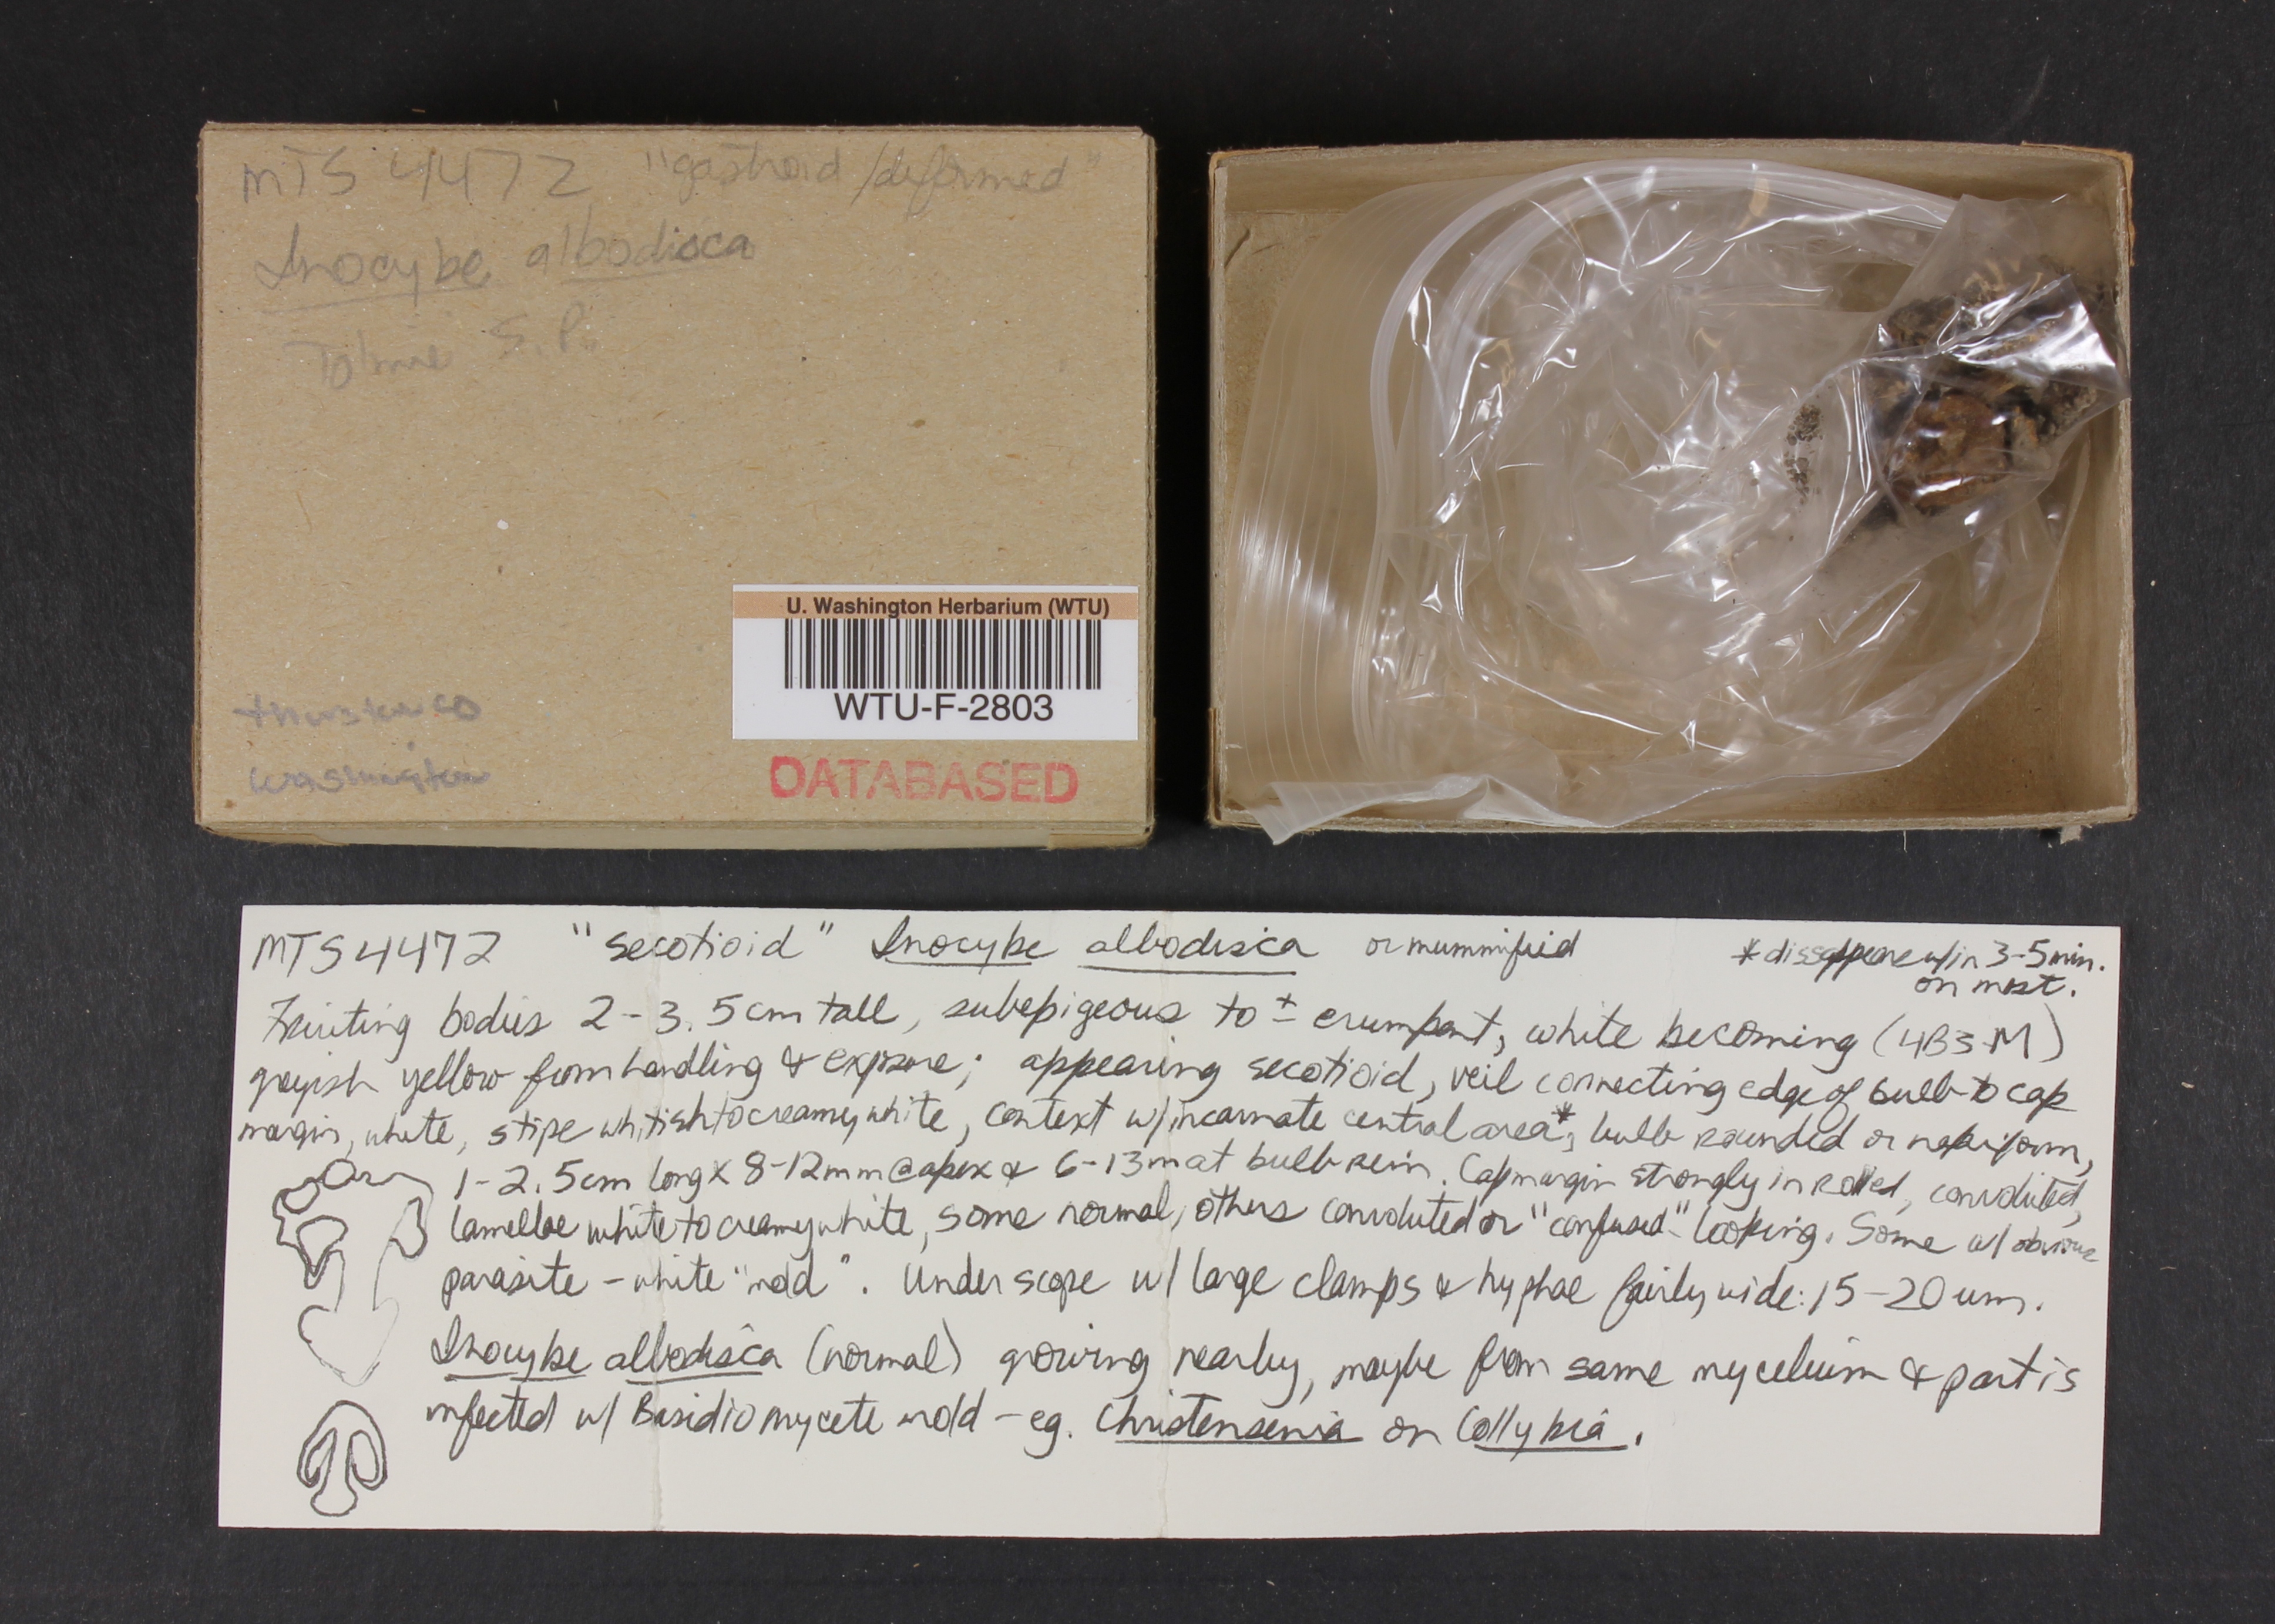 MTS 4472 "gastroid/deformed"
Inocybe albodisca
Tolmie S.P.
Thurston Co
Washington
U. Washington Herbarium (WTU)
WTU-F-2803
DATABASED
MTS 4472 "secotioid" Inocybe albodisca or mummified
*dissappears w/in 3-5 min.
on most.
Fruiting bodies 2-3.5cm tall, subepigeous to ± erumpent, white becoming (4B3-M)
grayish yellow from handling & exposure; appearing secotioid, veil connecting edge of bulb to cap
margin, white, stipe whitish to creamy white, context w/incarnate central area*, bulb rounded or napiform,
1-2.5cm long x 8-12mm @ apex & 6-13m at bulb rim. Cap margin strongly in rolled, convoluted,
lamellae white to creamy white, some normal, others convoluted or "confused" looking. Some w/ obvious
parasite - white "mold". Under scope w/ large clamps & hyphae fairly wide: 15-20 um.
Inocybe albodisca (normal) growing nearby, maybe from same mycelium & part is
infected w/ Basidiomycete mold - eg. Christensenia on Collybia.